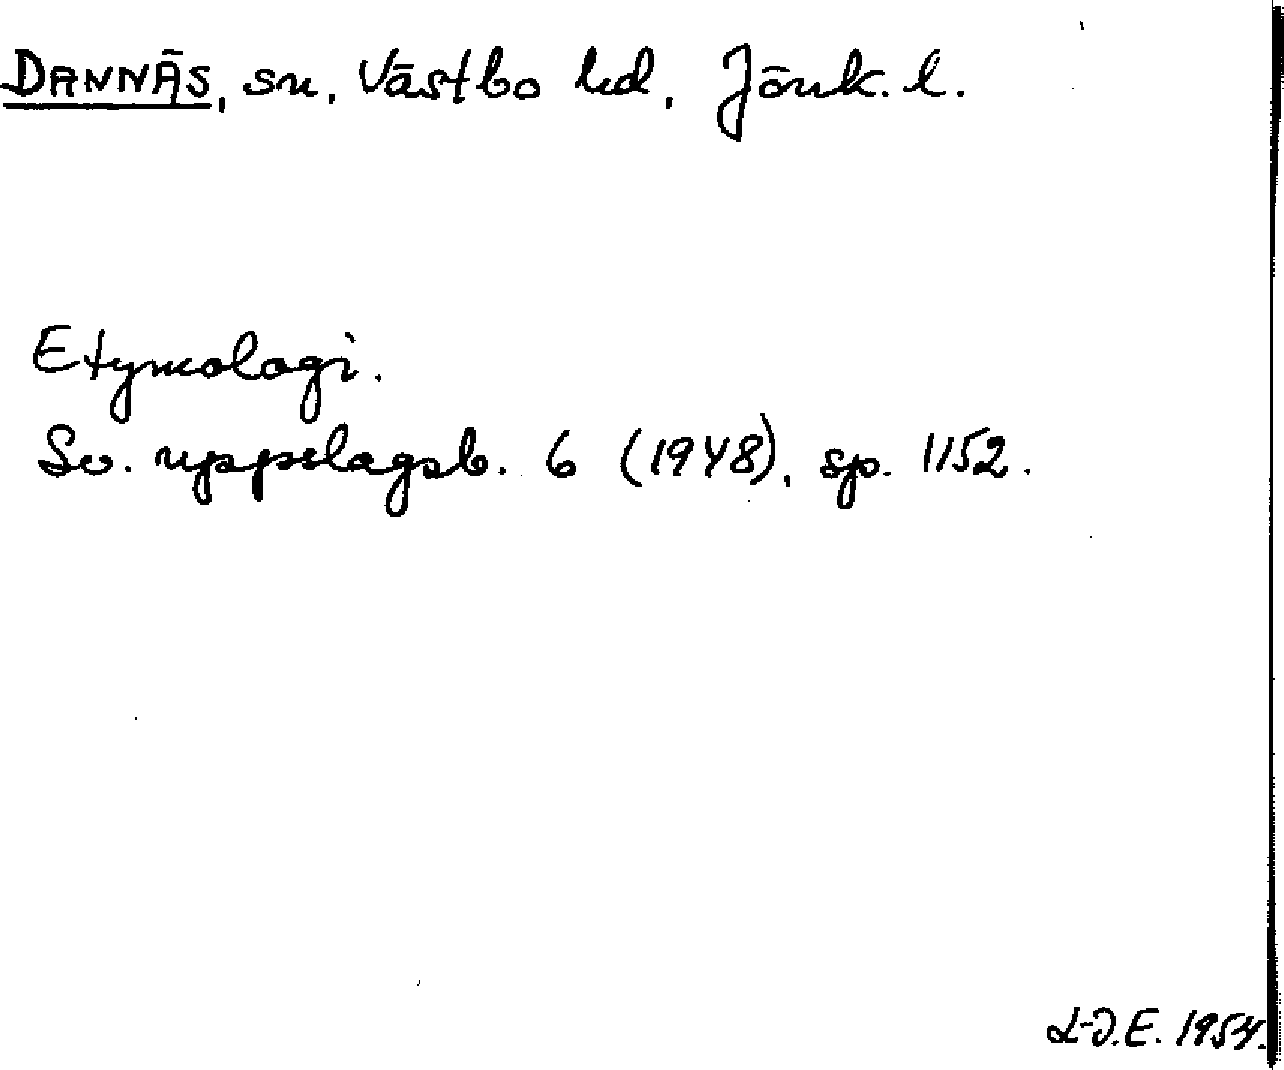 DANNÄS, sn, Västbo hd, Jönk. l.
Etymologi.
Sv. uppslagsb. 6 (1948), sp. 1152.
L-J.E. 1954.